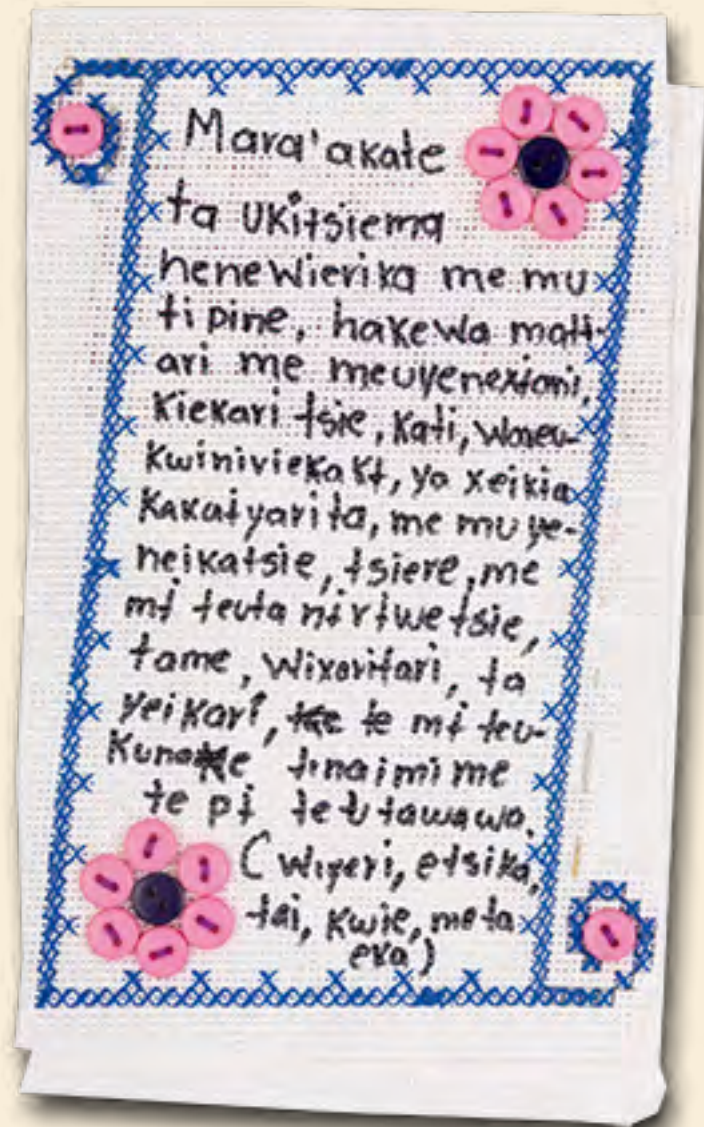 Mara'akate
ta ukitsiema
henewierika me mu
ti pine, hakewa matɨ-
ari me meuyenexiani,
Kiekari tsie, Kati,
Kwiniviekakɨ, ya xeikia
Kakaɨyarita, me mu ye-
neikatsie, tsiere, me
mɨ teuta nɨrɨwe tsie,
tame, Wixaritari, ta
yeikari, te mɨ teu-
Kuna
te pɨ te ɨ tawawa.
(wiyeri, etsika,
tai, Kwie, meta
eka)